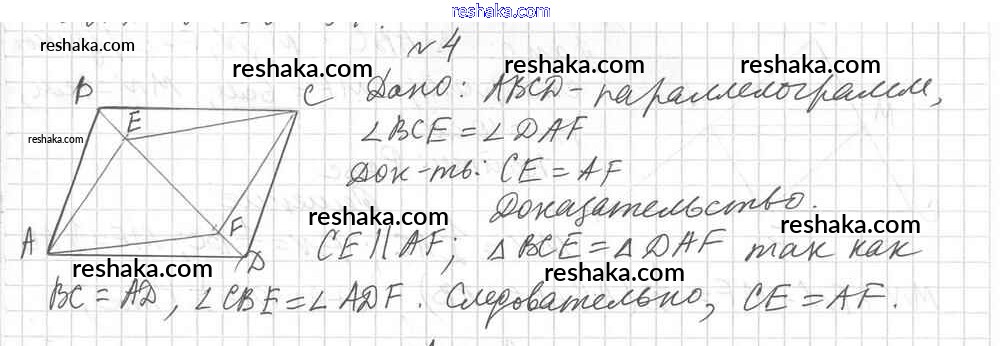 reshaka.com
№4
reshaka.com
reshaka.com reshaka.com reshaka.com
B C Дано: ABCD - параллелограмм,
E
reshaka.com
∠BCE = ∠DAF
reshaka.com
Док-ть: CE = AF
reshaka.com reshaka.com
Доказательство.
reshaka.com reshaka.com
A F D CE || AF; △BCE = △DAF так как
reshaka.com reshaka.com reshaka.com
BC = AD, ∠CBE = ∠ADF. Следовательно, CE = AF.